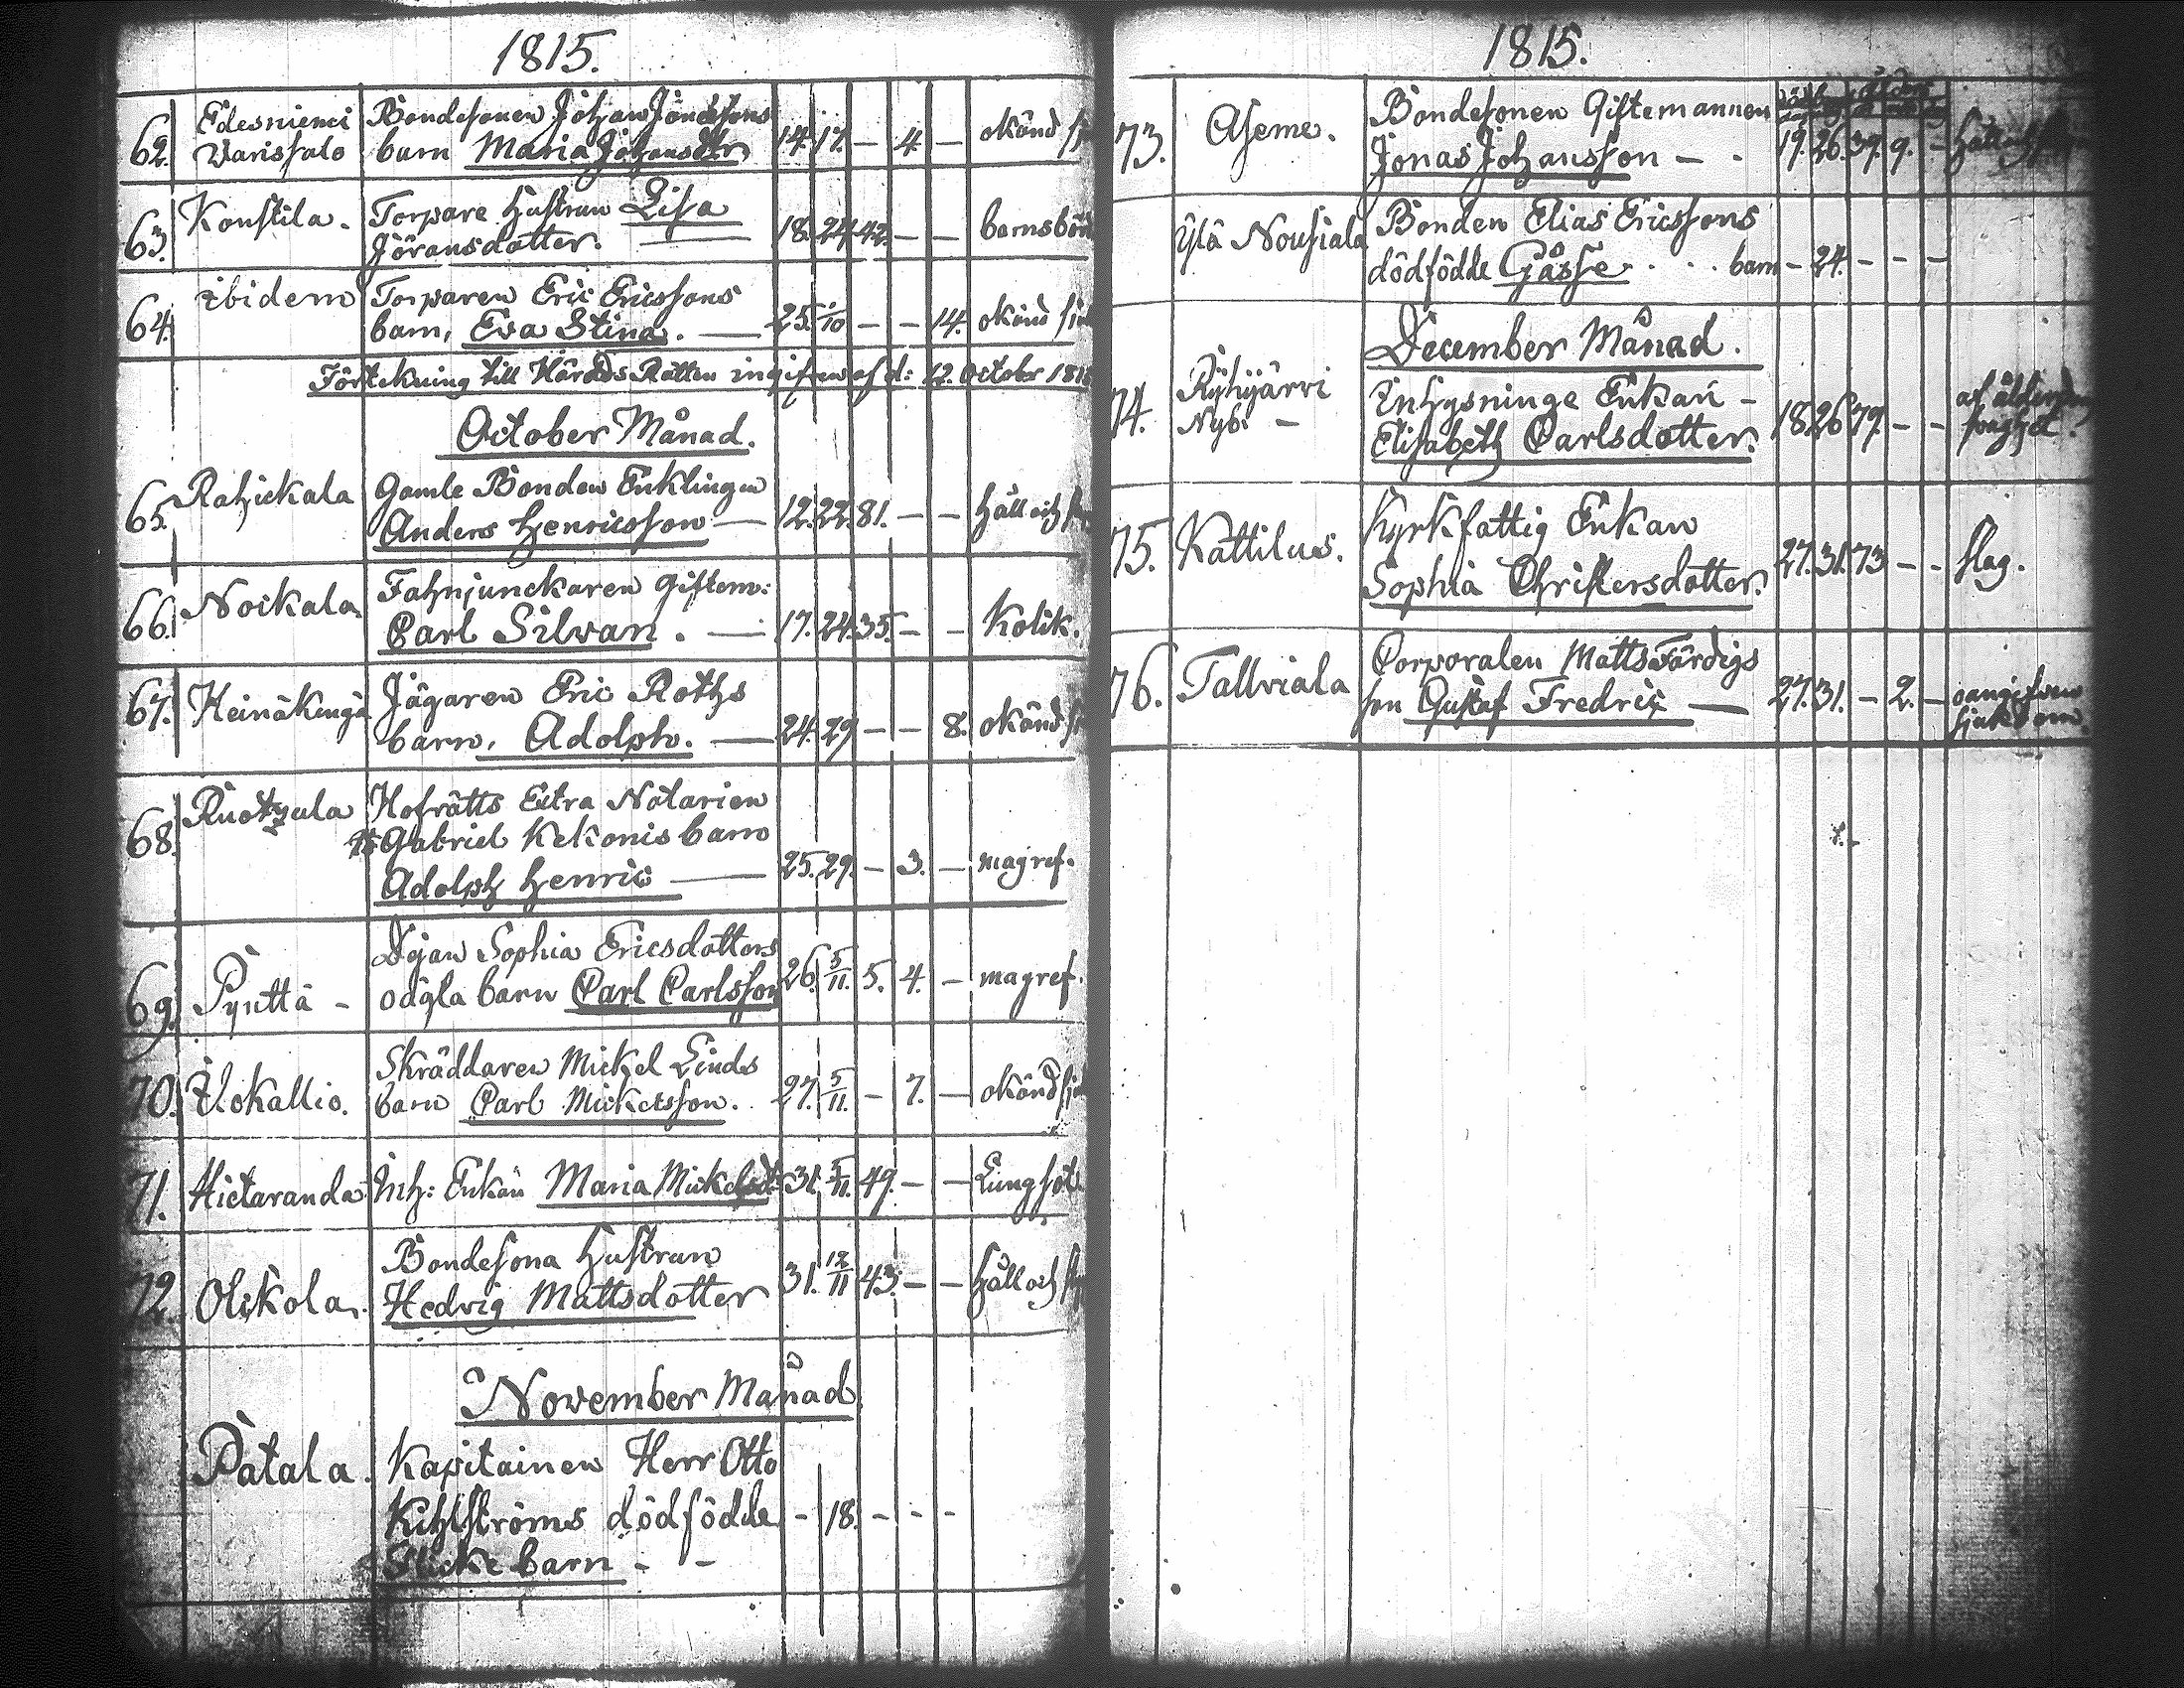 1815.
62. Edesniemi Bondesonen Johan Jönssons
Varissalo barn Maria Johansdtr 14. 17. - 4. - okänd
63. Konstila. Torpare Hustrun Lisa
Jöransdotter. 18. 24. 42. - - barnsbörd
64. Ibidem Torparen Eric Ericssons
barn, Eva Stina. 25. 1/10 - - 14. okänd
Förtekning till Härads Rätten ingifwen af d: 12. October 1815
October Månad.
65. Rahickala Gamle Bonden Enklingen
Anders Henricsson 12. 22. 81. - - håll och
66. Nockala. Fahnjunckaren Giftem:
Carl Silvan. 17. 24. 35. - - Kolik.
67. Heinäkingä Jägaren Eric Roths
barn, Adolph. 24. 29 - - 8. okänd
68. Ruotzula Hofrätts Extra Notarien
Gabriel Kekonis barn
Adolph Henric 25. 29. - 3. - magref.
69. Pynttä - Pigan Sophia Ericsdotters
oägta barn Carl Carlsson 26. 5/11. 5. 4. - magref.
70. Iokallio. Skräddaren Mickel Linds
barn Carl Mickelsson. 27. 5/11. - 7. - okänd
71. Hietaranda Inh: Enkan Maria Mickelsdr 31. 5/11. 49. - - Lungsot.
72. Olikola. Bondesona Hustrun
Hedvig Mattsdotter 31. 12/11 43. - - håll och
November Månad
Patala. Kapitainen Herr Otto
Kihlströms dödfödde - 18. - - -
Flicke barn - -
1815.
73. Aseme. Bondesonen Giftemannen
Jonas Johansson - - 19. 26. 39. 9. - håll och
Ylä Nousiala Bonden Elias Ericssons
dödfödde Gåsse . . . barn - 24. - - -
December Månad.
74. Ryhyjärvi Inhysninge Enkan -
Nyb. - Elisabeth Carlsdotter. 18. 26 79. - - af ålderdoms
75. Kattilus. Kyrkfattig Enkan
Sophia Christersdotter. 27. 31. 73 - - slag.
76. Tallviala Corporalen Matts Färdigs
son Gustaf Fredric 27. 31. - 2. - oangifven
sjukdom.